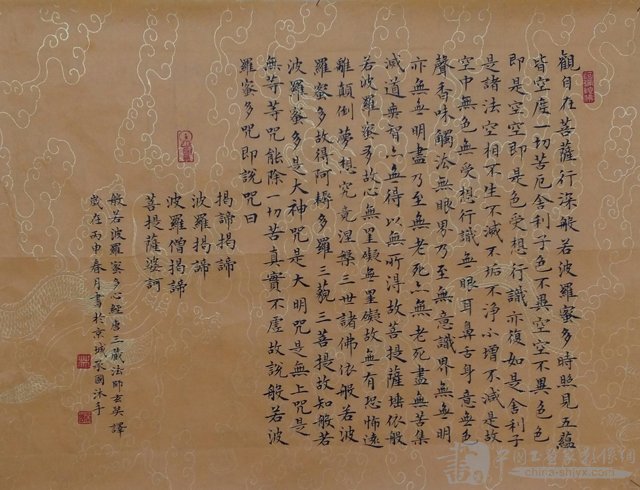 觀自在菩薩行深般若波羅蜜多時照見五蘊
皆空度一切苦厄舍利子色不異空空不異色色
即是空空即是色受想行識亦復如是舍利子
是諸法空相不生不滅不垢不淨不增不減是故
空中無色無受想行識無眼耳鼻舌身意無色
聲香味觸法無眼界乃至無意識界無無明
亦無無明盡乃至無老死亦無老死盡無苦集
滅道無智亦無得以無所得故菩提薩埵依般
若波羅蜜多故心無罣礙無罣礙故無有恐怖遠
離顛倒夢想究竟涅槃三世諸佛依般若波
羅蜜多故得阿耨多羅三藐三菩提故知般若
波羅蜜多是大神咒是大明咒是無上咒是
無等等咒能除一切苦真實不虛故說般若波
羅蜜多咒即說咒曰
揭諦揭諦
波羅揭諦
波羅僧揭諦
菩提薩婆訶
般若波羅蜜多心經唐三藏法師玄奘譯
歲在丙申春月書於京城國沐手
china-shjyx.com